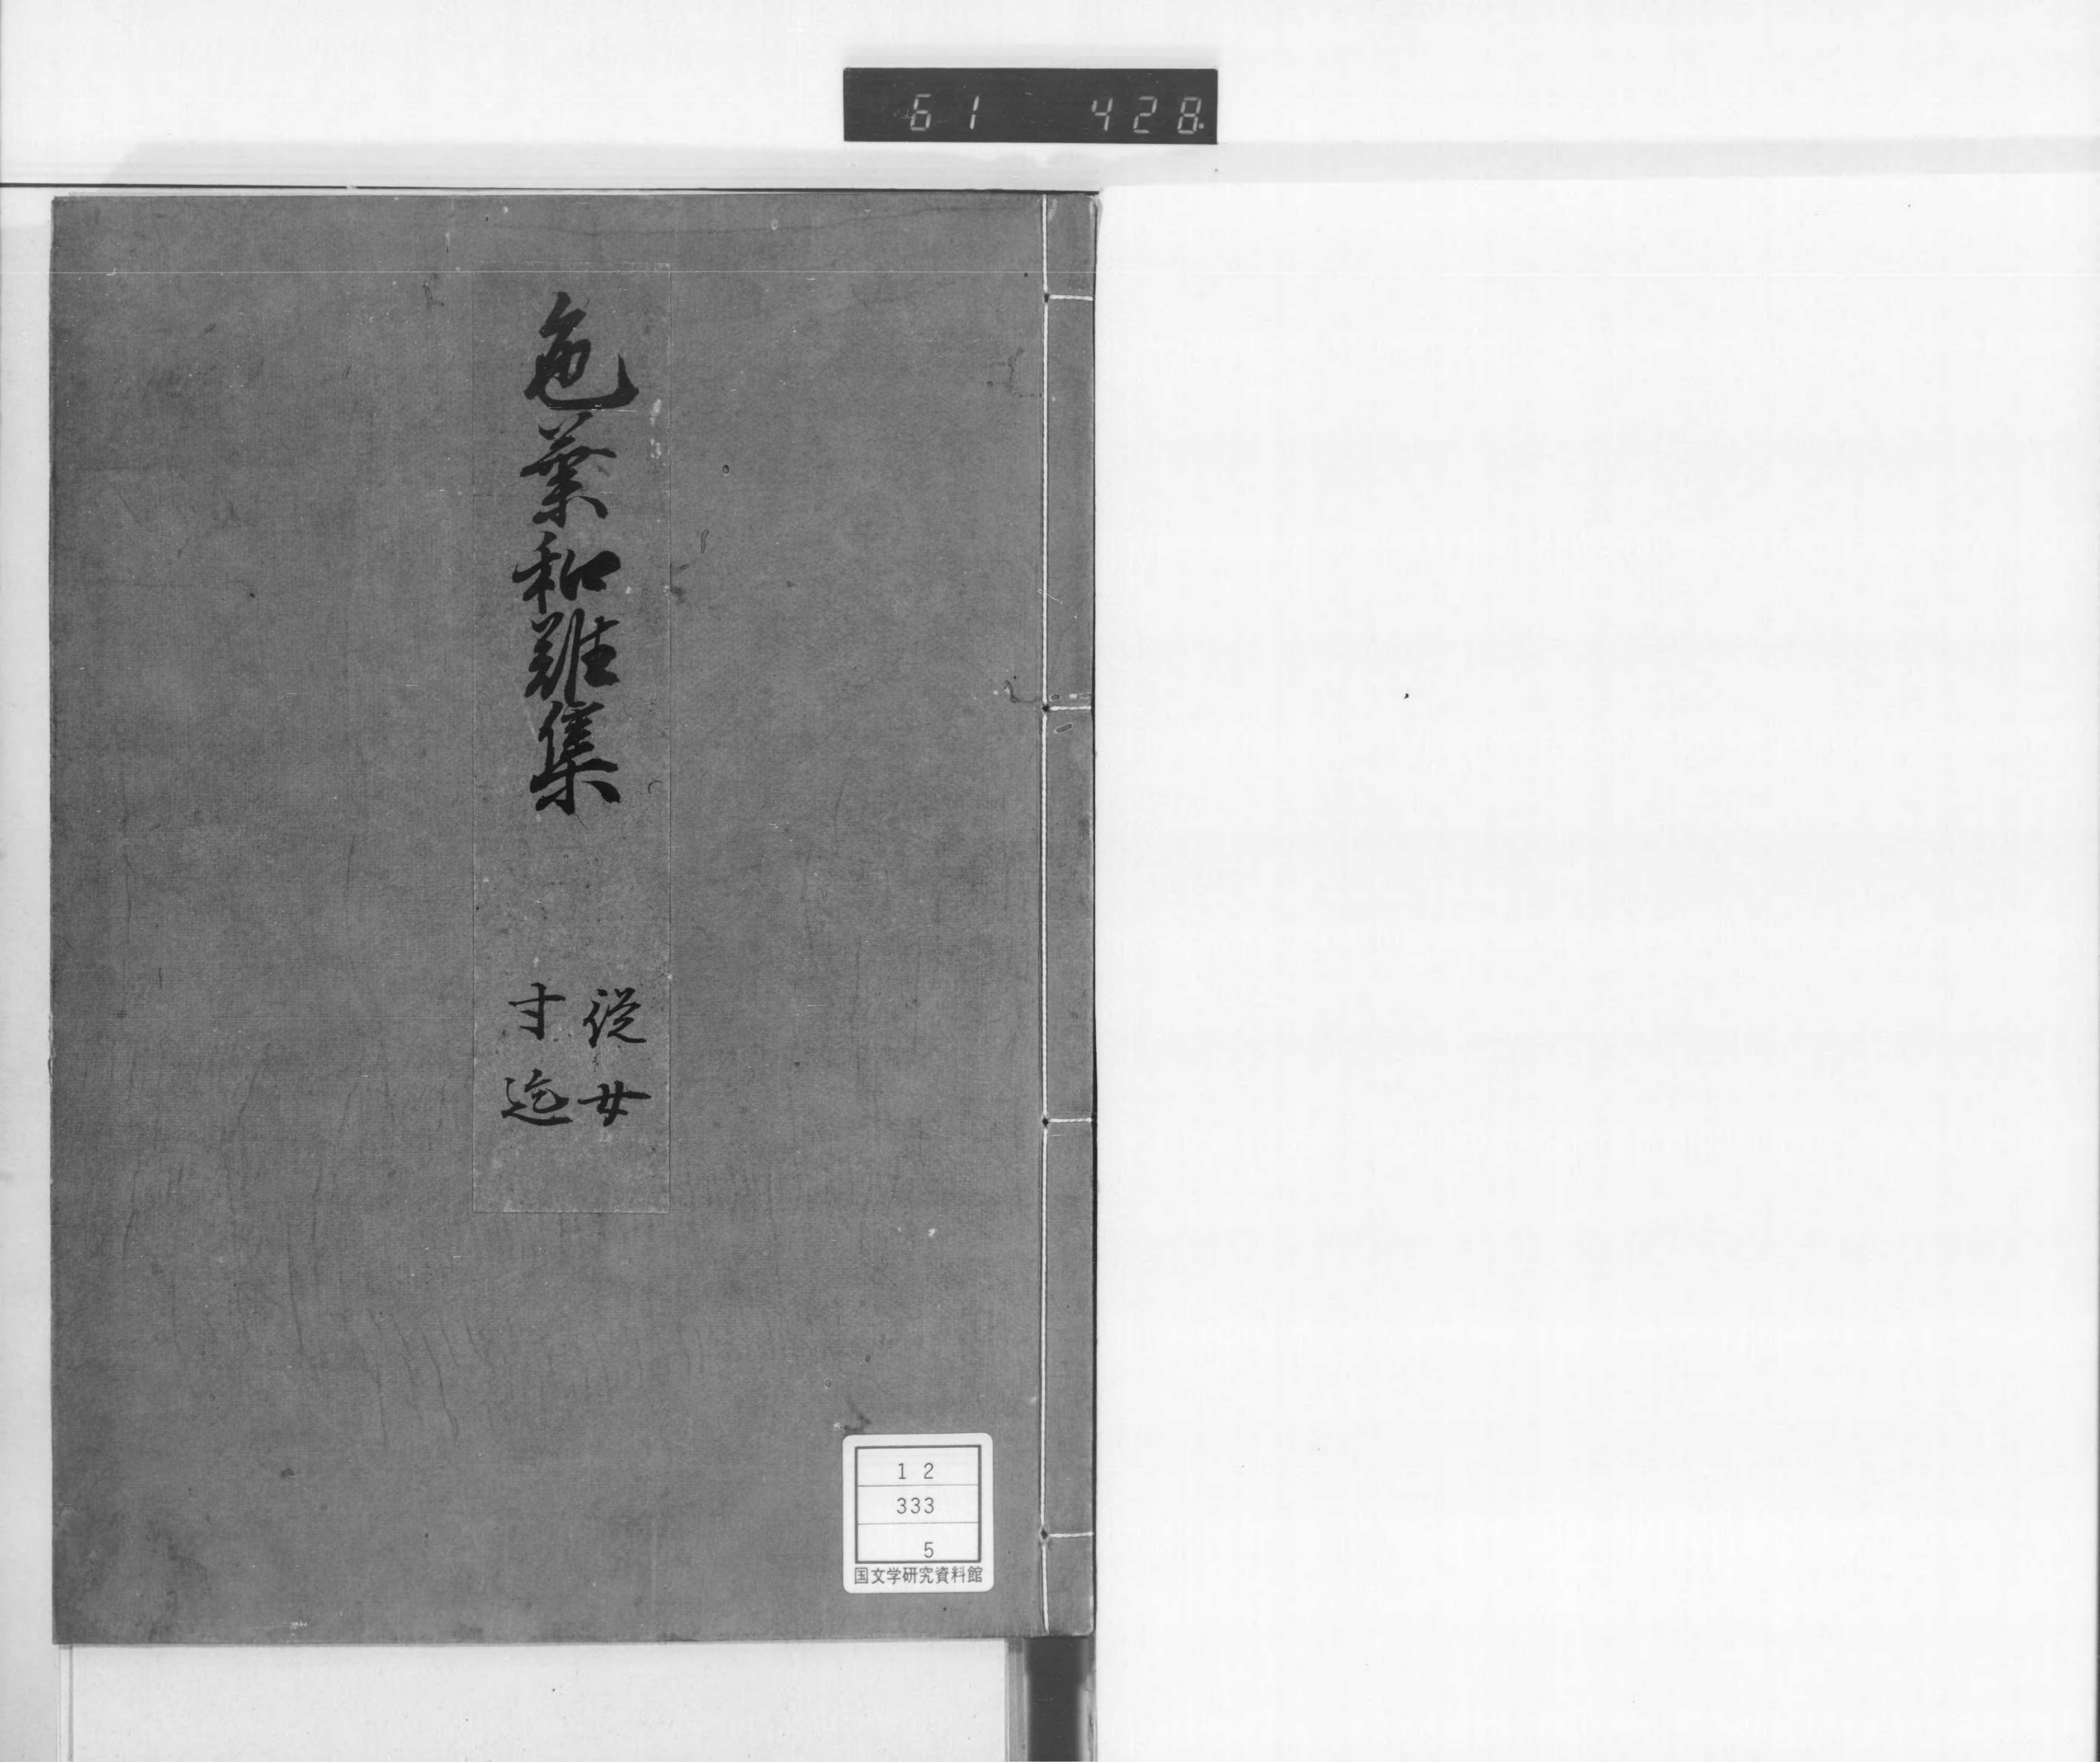 61 428
色葉和難集
従女
寸迄
12
333
5
国文学研究資料館